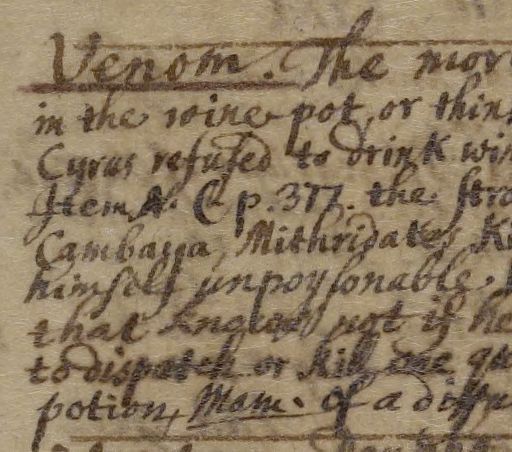 Venom. The mor
in the wine pot, or thin
Cyrus refused to drink win
Item A. C p. 377. the stra
Cambaya, Mithridates Ki
himself unpoysonable.
that not if he
to dispatch or kill one qu
potion, Mam. Of a diffu